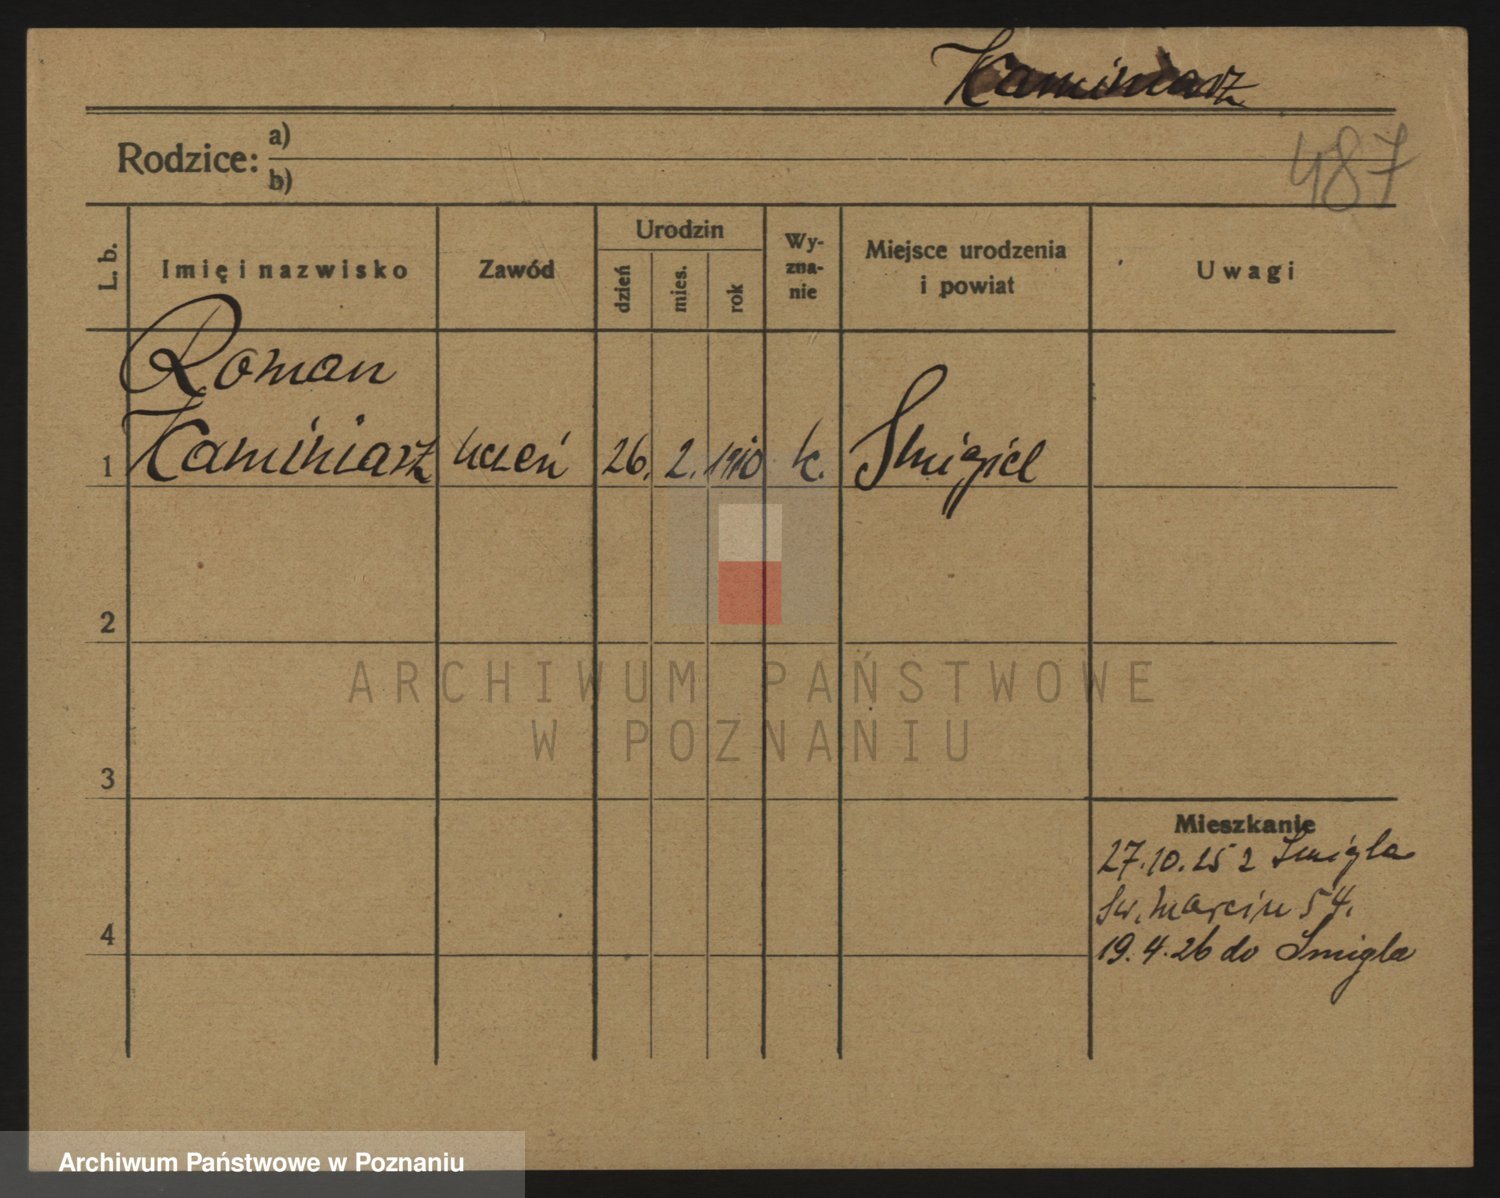 Kaminiarz
487
Rodzice: a)
b)
L. b.
Imię i nazwisko
Zawód
Urodzin
dzień
mies.
rok
Wy-
zna-
nie
Miejsce urodzenia
i powiat
Uwagi
Roman
1 Kaminiarz uczeń 26. 2. 1910 k. Śmigiel
2
ARCHIWUM PAŃSTWOWE
W POZNANIU
3
Mieszkanie
27.10.25 z Śmigla
Św. Marcin 54.
4
19.4.26 do Śmigla
Archiwum Państwowe w Poznaniu